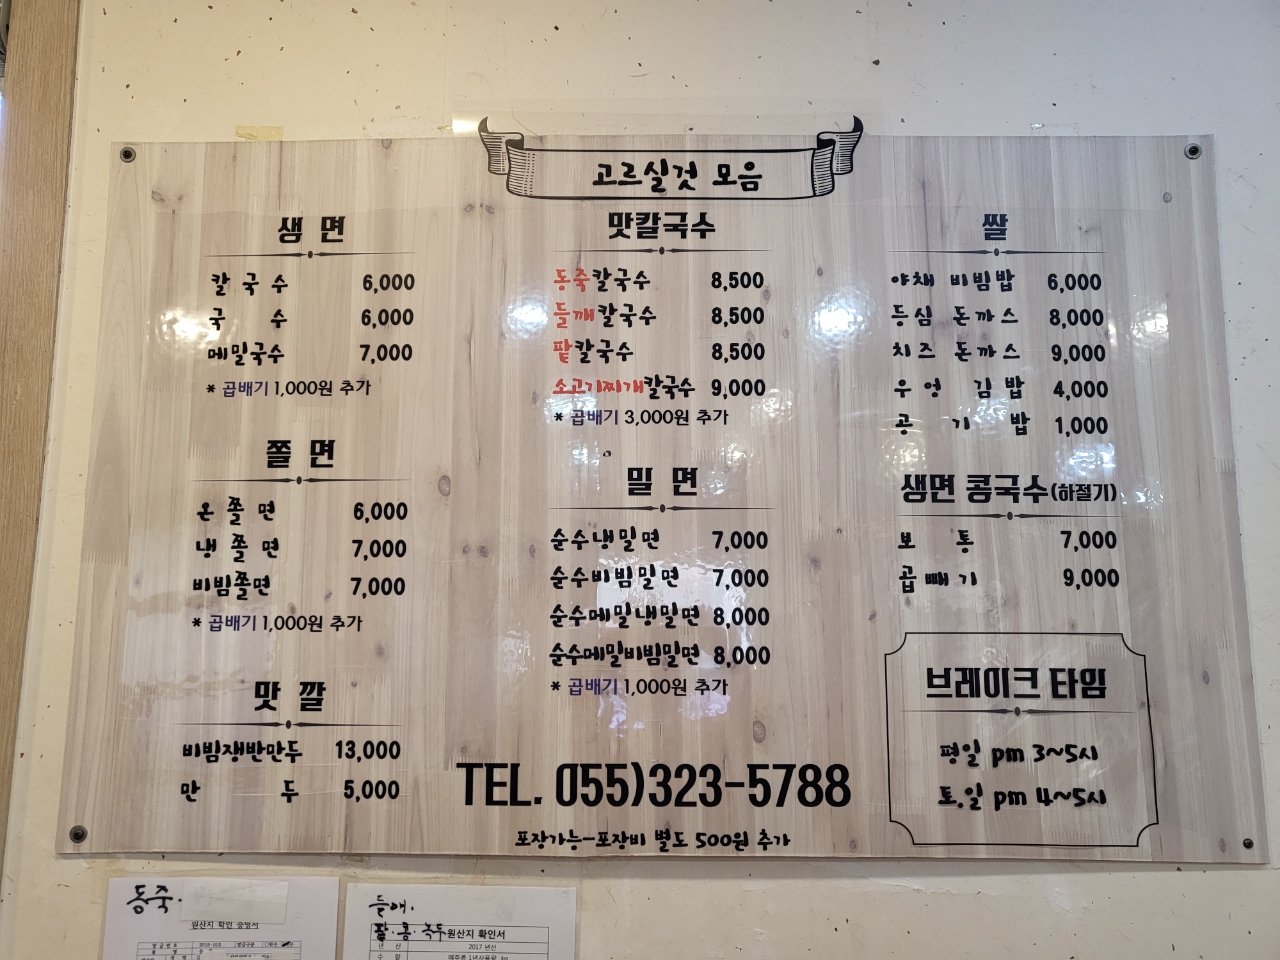 고르실것 모음
생 면
칼 국 수 6,000
국 수 6,000
메밀국수 7,000
* 곱배기 1,000원 추가
쫄 면
온 쫄 면 6,000
냉 쫄 면 7,000
비빔쫄면 7,000
* 곱배기 1,000원 추가
맛 깔
비빔쟁반만두 13,000
만 두 5,000
맛칼국수
동죽칼국수 8,500
들깨칼국수 8,500
팥칼국수 8,500
소고기찌개칼국수 9,000
* 곱배기 3,000원 추가
밀 면
순수냉밀면 7,000
순수비빔밀면 7,000
순수메밀냉밀면 8,000
순수메밀비빔밀면 8,000
* 곱배기 1,000원 추가
쌀
야채 비빔밥 6,000
등심 돈까스 8,000
치즈 돈까스 9,000
우엉 김밥 4,000
공 기 밥 1,000
생면 콩국수(하절기)
보 통 7,000
곱 빼 기 9,000
브레이크 타임
평일 pm 3~5시
토.일 pm 4~5시
TEL. 055)323-5788
포장가능-포장비 별도 500원 추가
동죽.
원산지 확인 증명서
들깨.
팥.콩.녹두 원산지 확인서
년 산 2017 년산
수 량